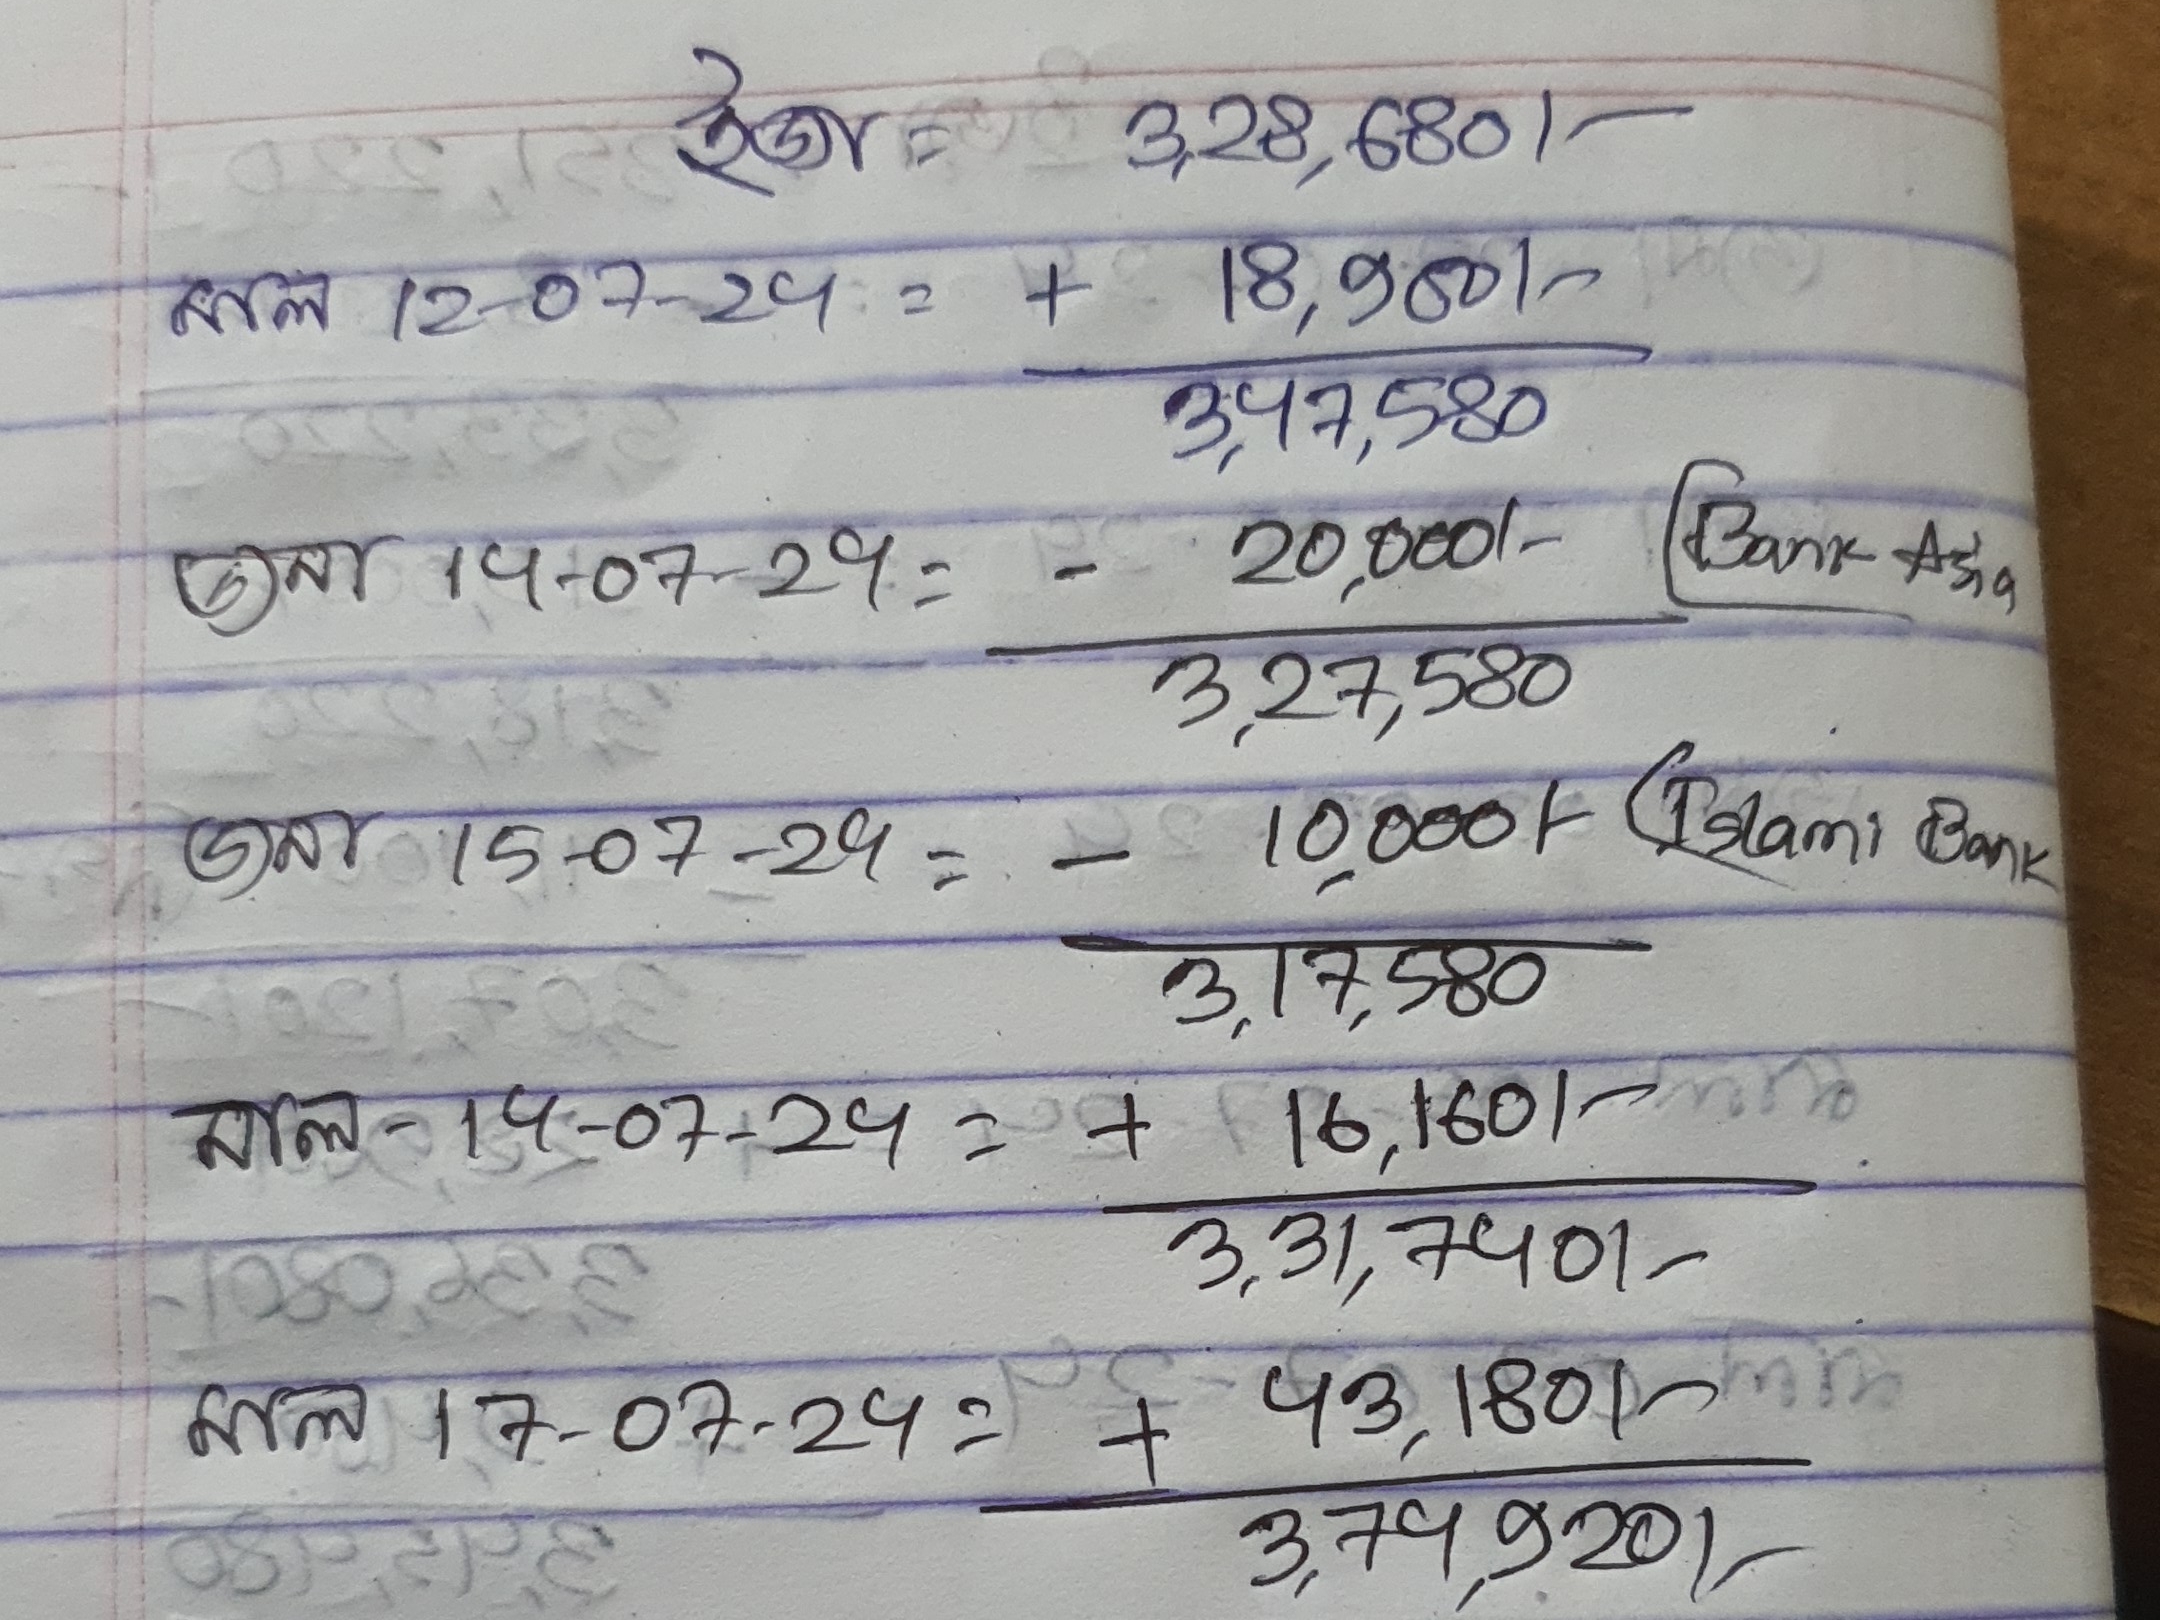 ইজা = 3,28,680/-
মাল 12-07-24 = + 18,900/-
3,47,580
জমা 14-07-24 = - 20,000/- (Bank Asia
3,27,580
জমা 15-07-24 = - 10,000/- (Islami Bank
3,17,580
মাল - 14-07-24 = + 16,160/-
3,31,740/-
মাল 17-07-24 = + 43,180/-
3,74,920/-